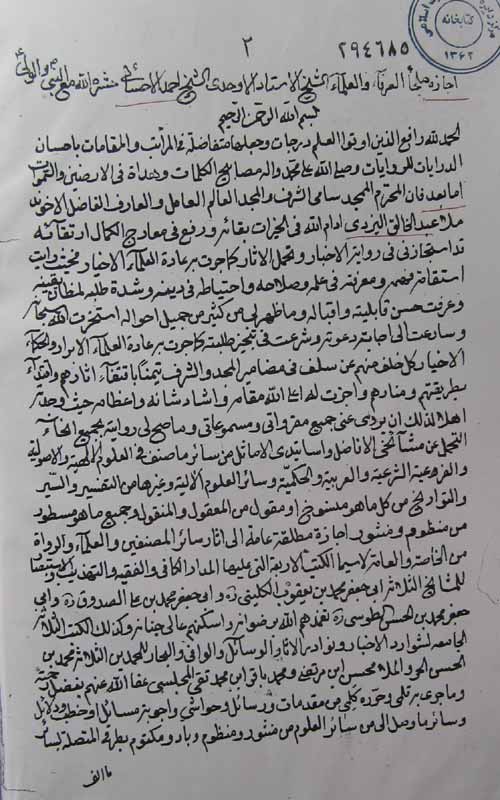 ٢
٢٩٤٦٨٥
كتابخانه
١٣٦٢
اجازه ملجأ العرفاء والعلماء الشيخ الاستاد الاوحدى الشيخ احمد الاحسائى حشره الله مع النبى والولى
بسم الله الرحمن الرحيم
الحمد لله رافع الذين اوتوا العلم درجات وجعلها متفاضلة فى المراتب والمقامات باحسان
الدرايات للروايات وصلى الله على محمد واله مصابيح الكلمات وهداة فى الارضين والسموات
اما بعد فان المحترم الممجد سامى الشرف والمجد العالم العامل والعارف الفاضل الاخوند
ملا عبد الخالق اليزدى ادام الله فى الخيرات بقائه ورفع فى معارج الكمال ارتقائه
قد استجازنى فى رواية الاخبار وتحمل الاثار كما جرت به عادة العلماء الاخيار فحيث رايت
استقامة فهمه ومعرفته فى علمه وصلاحه واحتياطه فى دينه وشدة طلبه لمظان يقينه
وعرفت حسن قابليته واقباله وما ظهر لى من كثير من جميل احواله استخرت الله سبحانه
وسارعت الى اجابة دعوته وشرعت فى تنجيز طلبته كما جرت به عادة العلماء الابرار والحكماء
الاخيار كل خلف منهم عن سلف فى مضامير المجد والشرف تيمنا باقتفاء اثارهم واقتداء
بطريقتهم ومنارهم واجزت له اعلى الله مقامه واشاد شانه واعظامه حيث وجدته
اهلا لذلك ان يروى عنى جميع مقرواتى ومسموعاتى وما صح لى روايته بجميع انحاء
التحمل عن مشائخى الافاضل واساتيدى الاماثل من سائر ما صنف فى العلوم الالهية والاصولية
والفروعية الشرعية والعربية والحكمية وسائر العلوم الالية وغيرها من التفسير والسير
والتواريخ من كل ما هو منسوخ او مقول من المعقول والمنقول وجميع ما هو مسطور
من منظوم ومنثور اجازة مطلقة عامة الى اثار سائر المصنفين والعلماء والرواة
من الخاصة والعامة لاسيما الكتب الاربعة التى عليها المدار الكافى والفقيه والتهذيب والاستبصار
للمشايخ الثلاثة ابى جعفر محمد بن يعقوب الكلينى ره وابى جعفر محمد بن على الصدوق ره وابى
جعفر محمد بن الحسن الطوسى ره تغمدهم الله برضوانه واسكنهم عالى جنانه وكذلك الكتب الثلاثة
الجامعة لشوارد الاخبار ونوادر الاثار الوسائل والوافى والبحار للمحمدين الثلاثة محمد بن
الحسن الحر والملا محسن ابن مرتضى ومحمد باقر ابن محمد تقى المجلسى عفا الله عنهم بفضل رحمته
وما جرى به قلمى وحرره كلمى من مقدمات ورسائل وحواشى واجوبة مسائل او خطب ودلائل
وسائر ما وصل الى من سائر العلوم من منثور ومنظوم وباد ومكتوم بطرقه المتصلة لسائر
ما الف